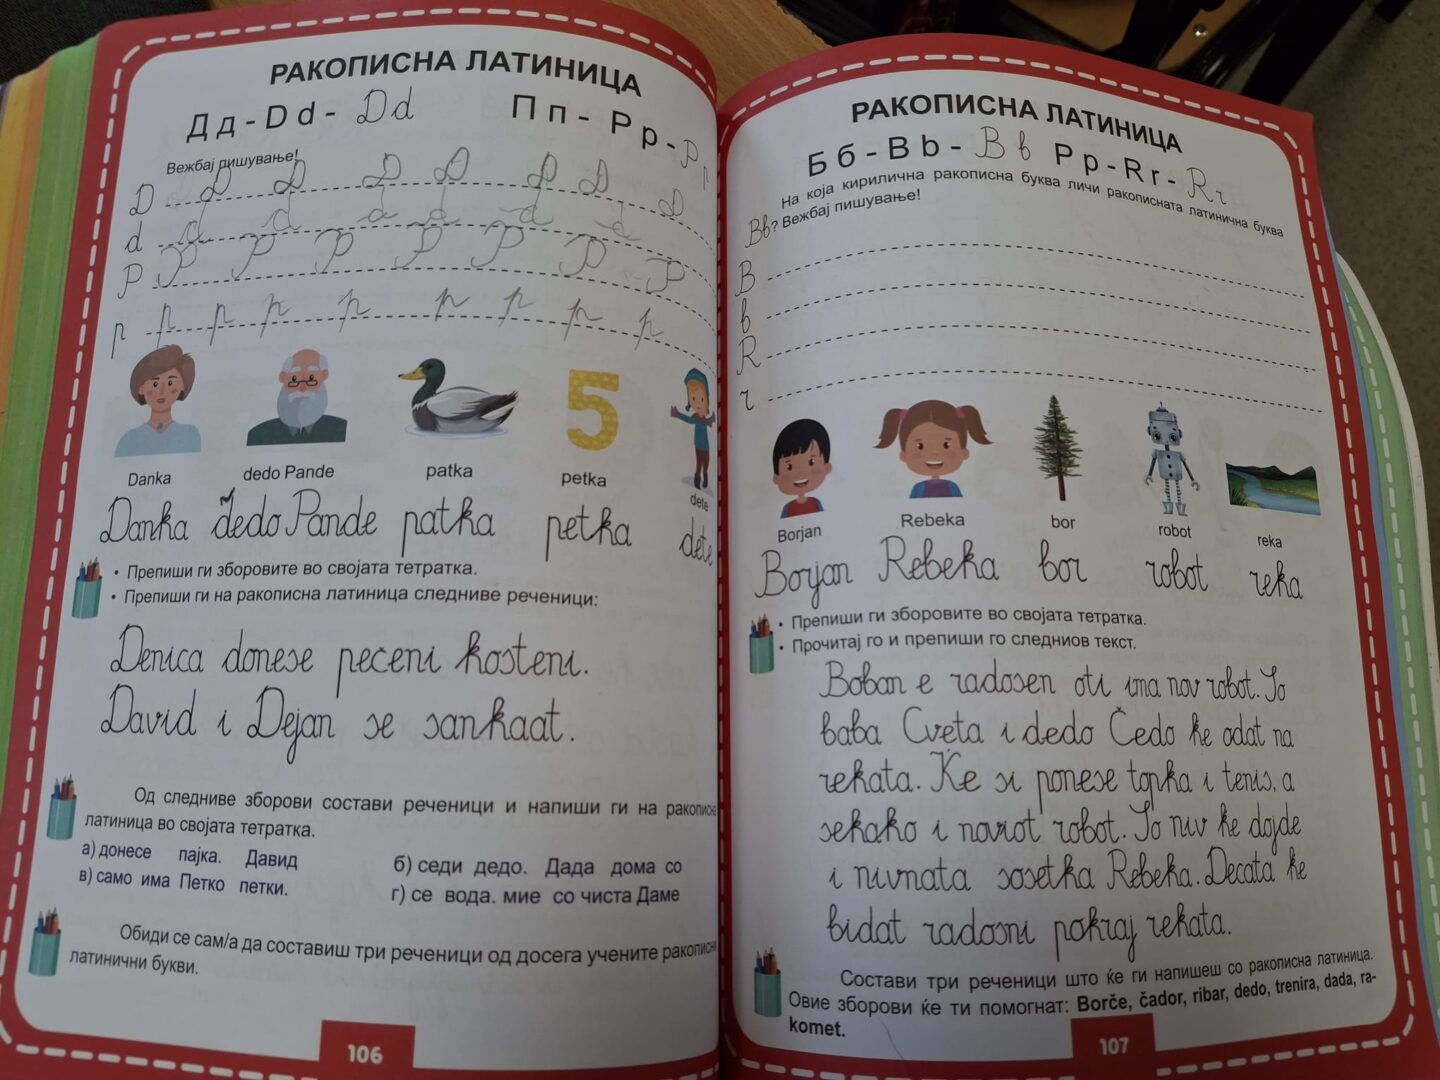 РАКОПИСНА ЛАТИНИЦА
Д д - D d - D d
П п - P p - P p
Вежбај пишување!
D D D D D D D D
d d d d d d d
P P P P P P P P
p p p p p p p p p
Danka
dedo Pande
patka
5
petka
dete
Danka dedo Pande patka petka dete
• Препиши ги зборовите во својата тетратка.
• Препиши ги на ракописна латиница следниве реченици:
Denica donese pečeni kosteni.
David i Dejan se sankaat.
Од следниве зборови состави реченици и напиши ги на ракописна
латиница во својата тетратка.
а) донесе пајка. Давид
б) седи дедо. Дада дома со
в) само има Петко петки.
г) се вода. мие со чиста Даме
Обиди се сам/а да составиш три реченици од досега учените ракописни
латинични букви.
106
РАКОПИСНА ЛАТИНИЦА
Б б - B b - B b Р р - R r - R r
На која кирилична ракописна буква личи ракописната латинична буква
Bb? Вежбај пишување!
B
b
R
r
Borjan
Rebeka
bor
robot
reka
Borjan Rebeka bor robot reka
• Препиши ги зборовите во својата тетратка.
• Прочитај го и препиши го следниов текст.
Boban e radosen oti ima nov robot. So
baba Cveta i dedo Čedo ḱe odat na
rekata. Ḱe si ponese topka i tenis, a
sekako i noviot robot. So niv ḱe dojde
i nivnata sosetka Rebeka. Decata ḱe
bidat radosni pokraj rekata.
Состави три реченици што ќе ги напишеш со ракописна латиница.
Овие зборови ќе ти помогнат: Borče, čador, ribar, dedo, trenira, dada, ra-
komet.
107